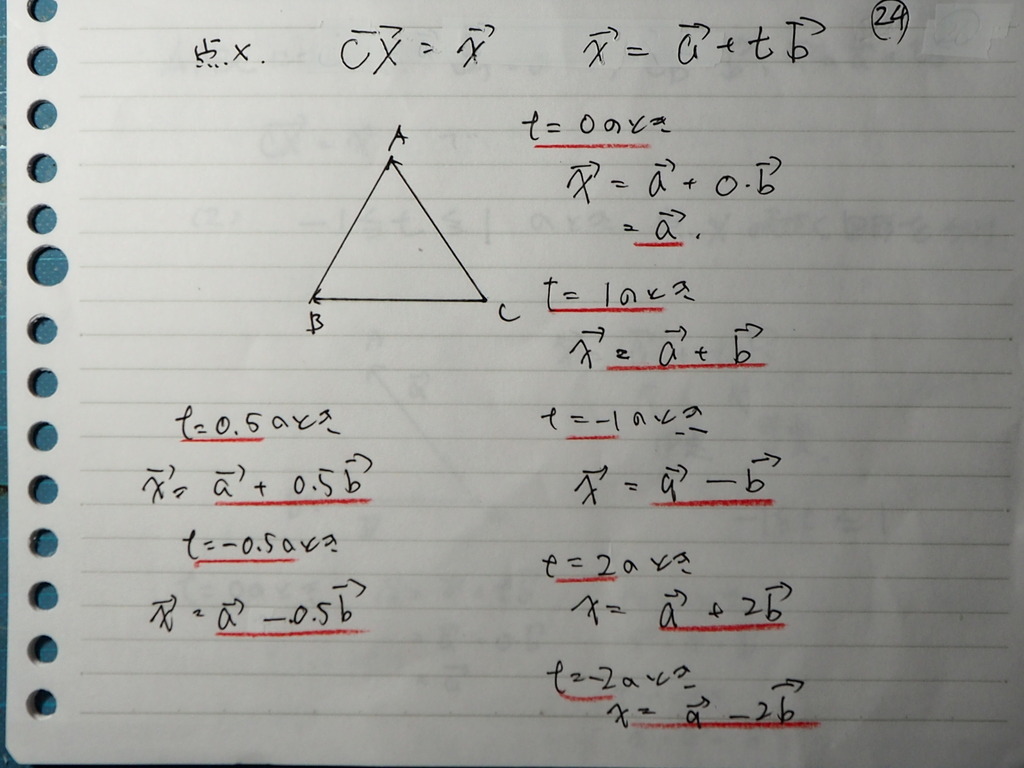 24
点X. CX→ = x→ x→ = a→ + t b→
A
B
C
t = 0のとき
x→ = a→ + 0・b→
= a→.
t = 1のとき
x→ = a→ + b→
t = 0.5のとき
x→ = a→ + 0.5b→
t = -0.5のとき
x→ = a→ - 0.5b→
t = -1のとき
x→ = a→ - b→
t = 2のとき
x = a→ + 2b→
t = -2のとき
x = a→ - 2b→